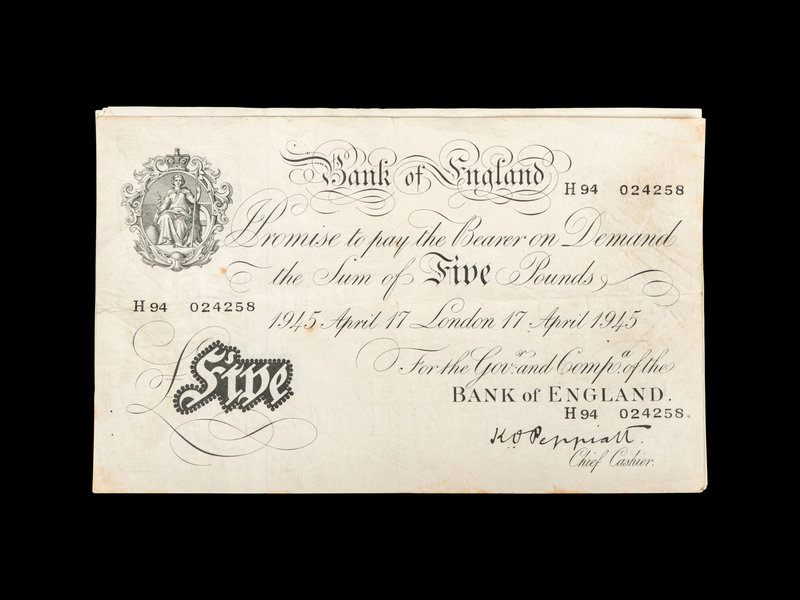 Bank of England
H 94 024258
Promise to pay the Bearer on Demand
the Sum of Five Pounds
H 94 024258
1945 April 17 London 17 April 1945
For the Govʳ. and Compᵃ. of the
BANK OF ENGLAND.
£ Five
H 94 024258
K O Peppiatt.
Chief Cashier.